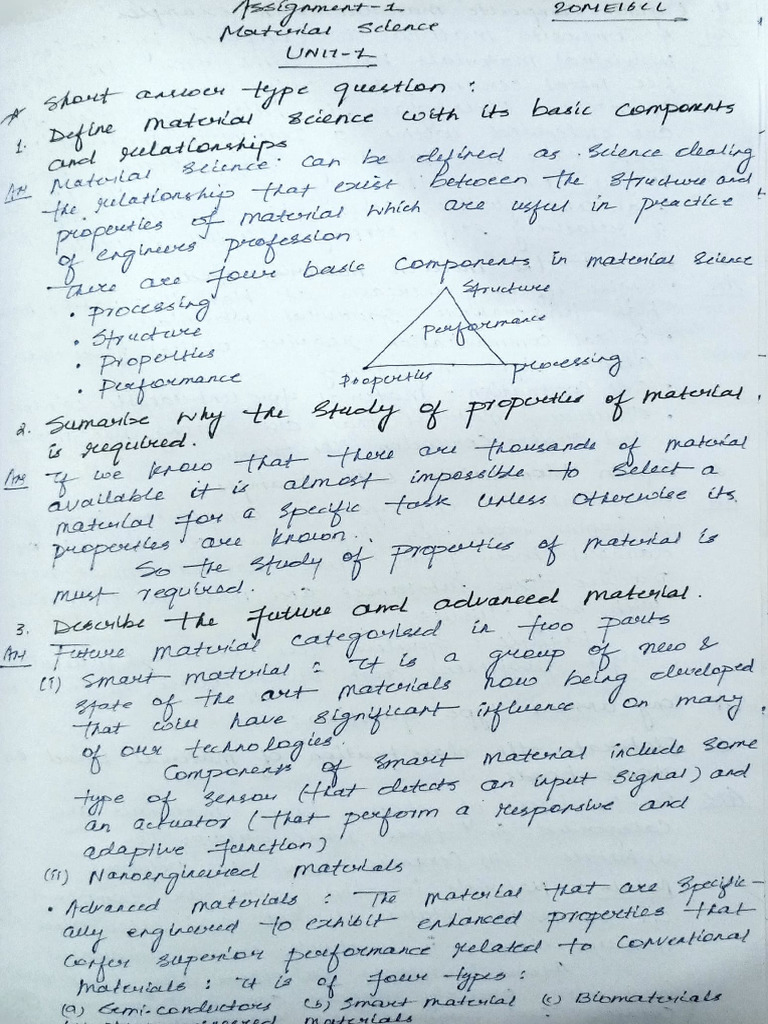 Assignment-1
20ME16CL
Material Science
UNIT-1
* Short answer type question :
1. Define Material Science with its basic components
and relationships
Ans Material Science can be defined as Science dealing
the relationship that exist between the structure and
properties of material which are useful in practice
of engineers profession
There are four basic components in material science
• Processing
• Structure
• Properties
• Performance
Structure
Performance
Properties
processing
2. Sumarise why the study of properties of material
is required.
Ans If we know that there are thousands of material
available it is almost impossible to select a
material for a specific task unless otherwise its
properties are known.
So the study of properties of material is
must required.
3. Describe the future and advanced material.
Ans Future material categorised in two parts
(i) Smart material : It is a group of new &
state of the art materials now being developed
that will have significant influence on many
of our technologies
Components of smart material include some
type of sensor (that detects an input signal) and
an actuator (that perform a responsive and
adaptive function)
(ii) Nanoengineered materials
• Advanced materials : The material that are specific-
ally engineered to exhibit enhanced properties that
confer superior performance related to conventional
materials : it is of four types :
(a) Semi-conductors (b) Smart material (c) Biomaterials
materials